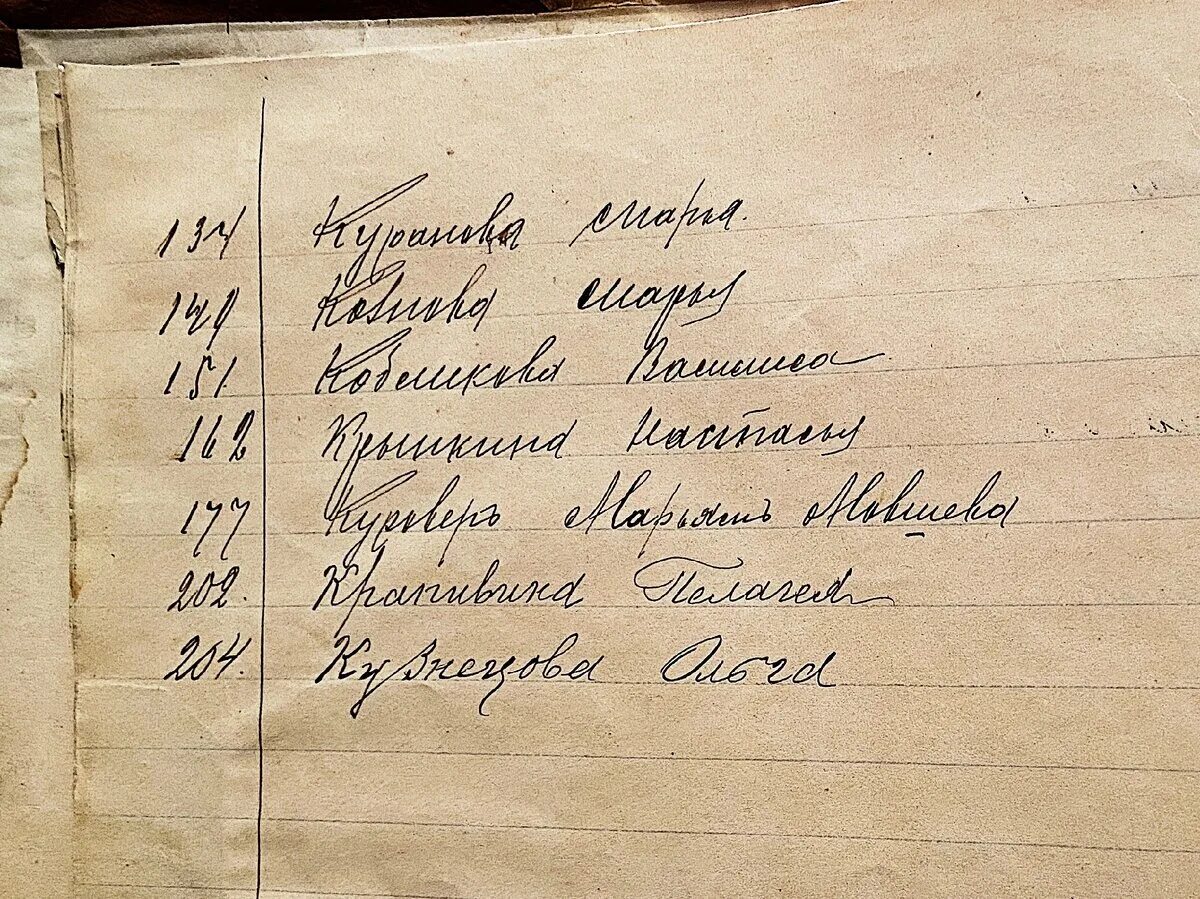 134 Куранова Марья.
149 Марья
151. Кобелькова Василиса
162 Крышкина Настасья
177 Марьямъ Мовшева
202. Крапивина Пелагея
204. Кузнецова Ольга